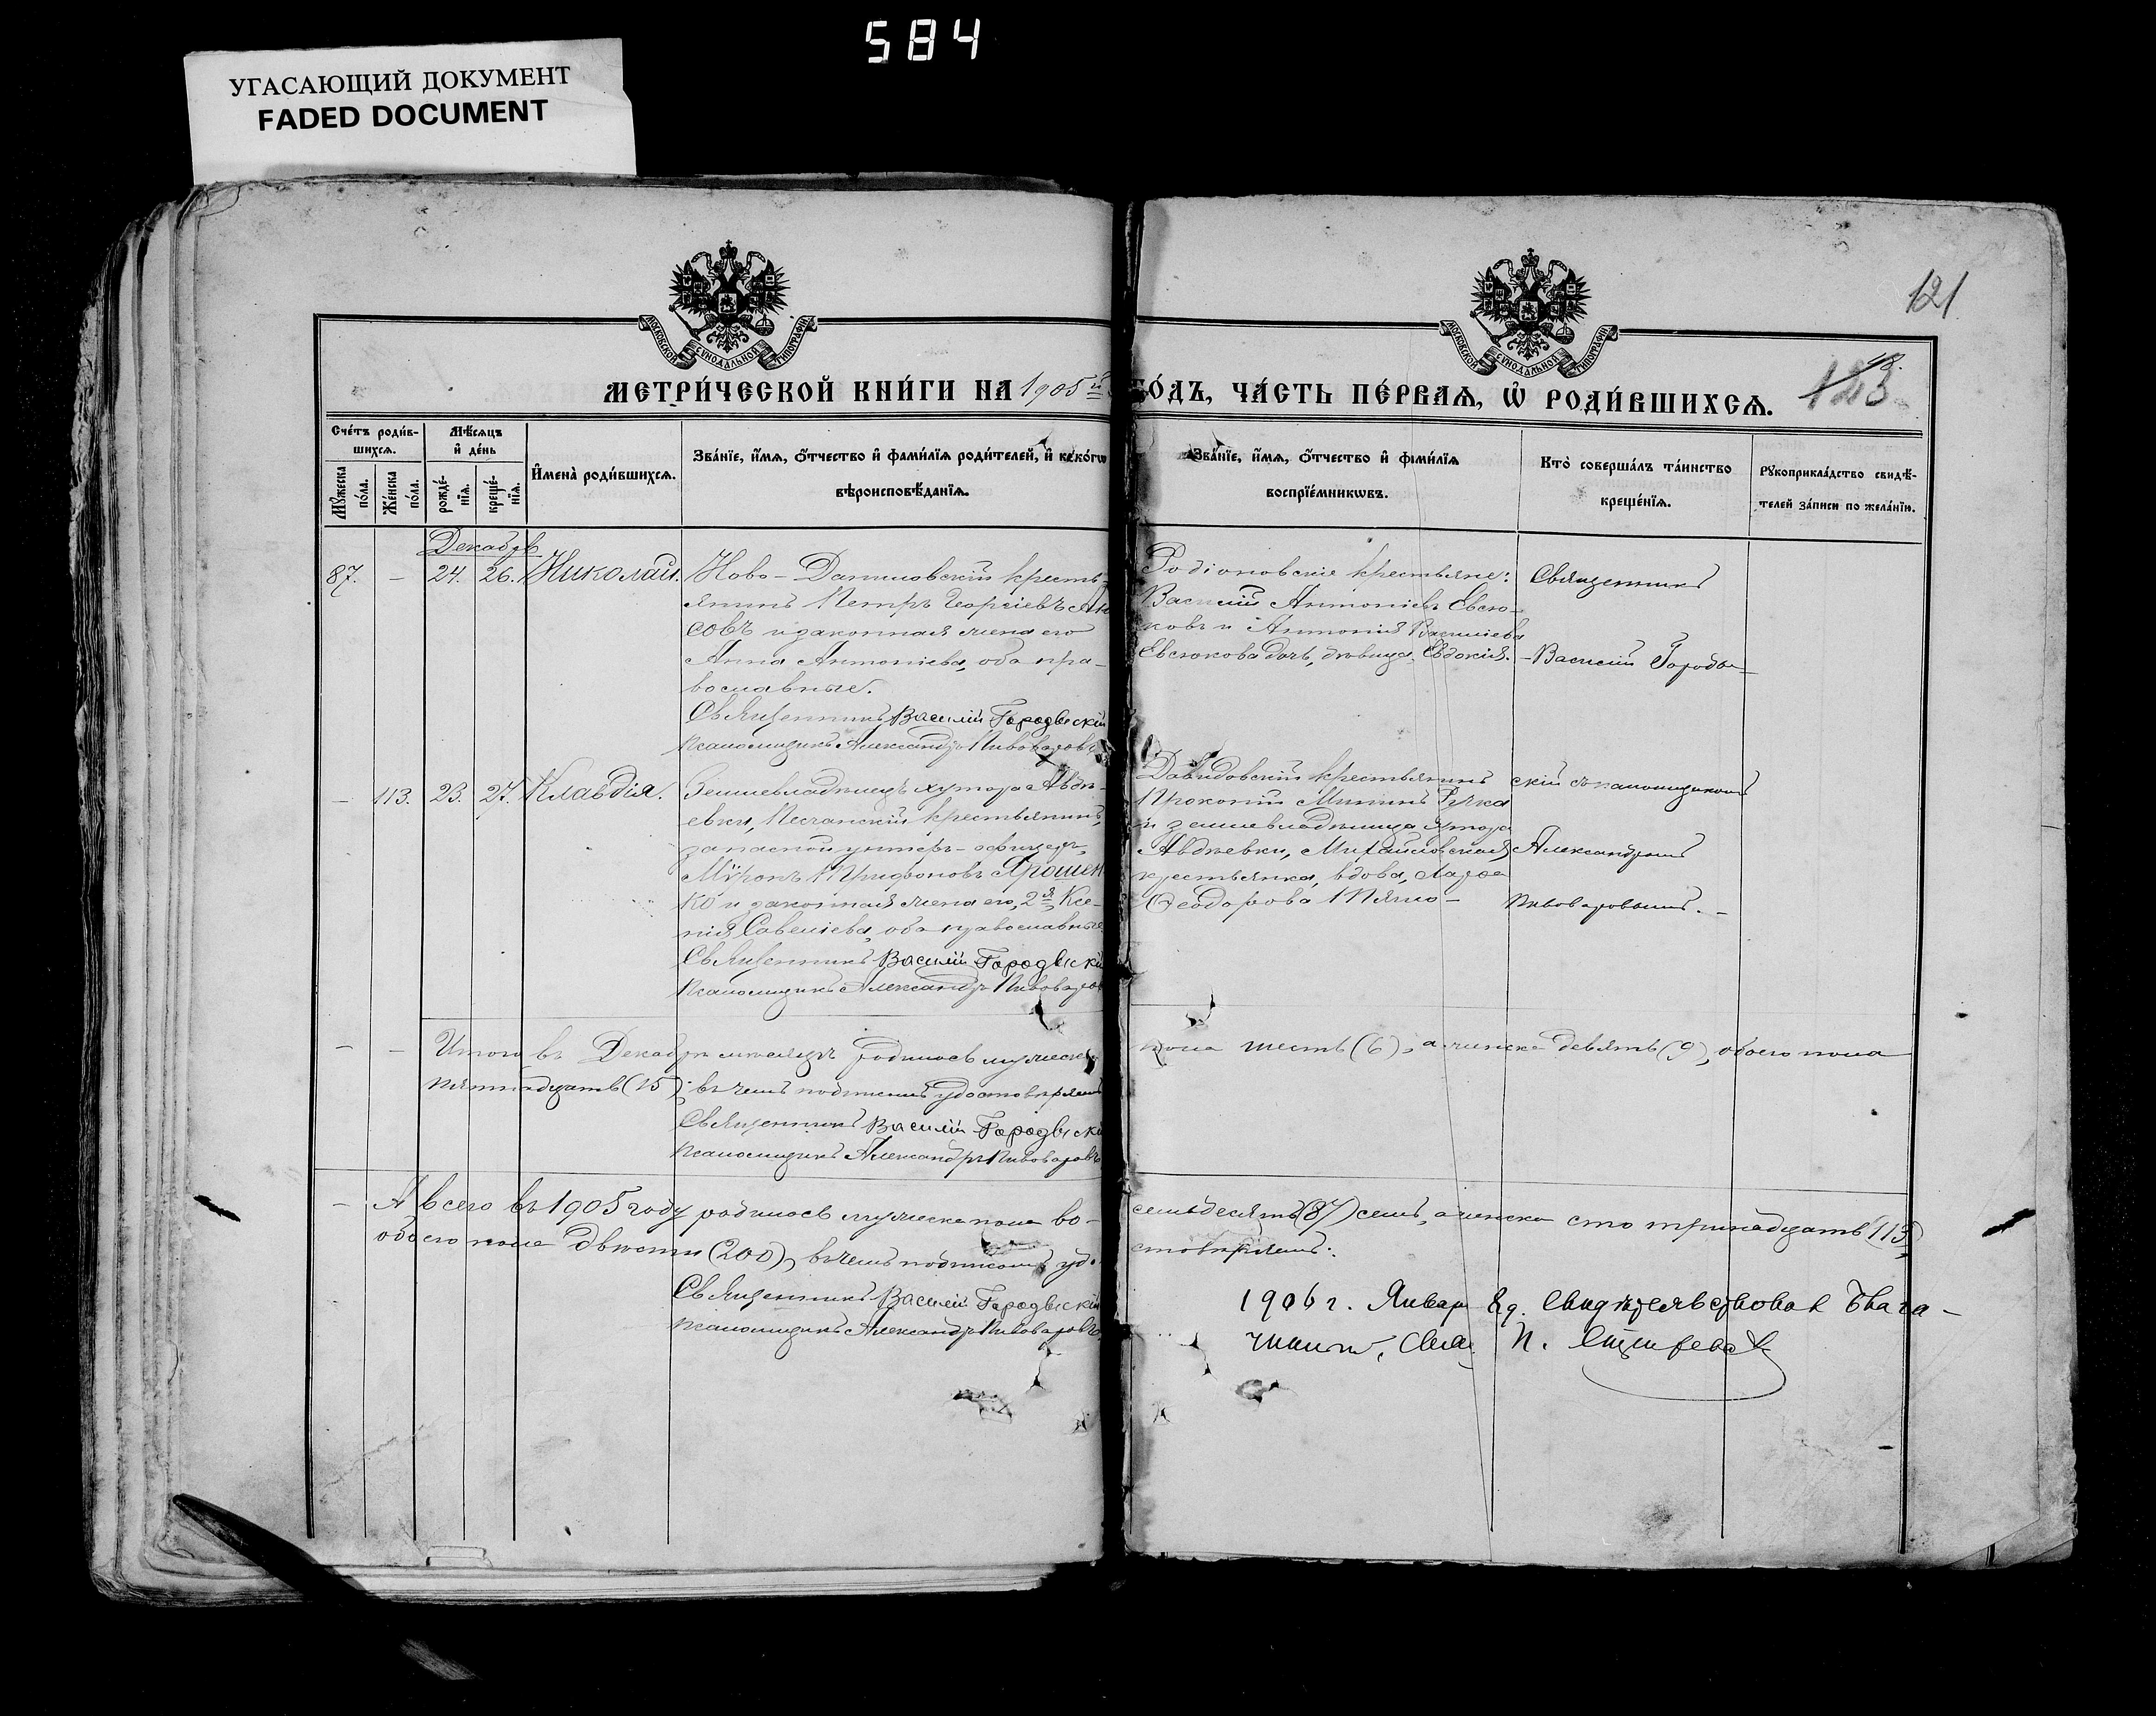 584
УГАСАЮЩИЙ ДОКУМЕНТ
FADED DOCUMENT
121
МОСКОВСКОЙ СѴНОДАЛЬНОЙ ТИПОГРАФІИ
МОСКОВСКОЙ СѴНОДАЛЬНОЙ ТИПОГРАФІИ
МЕТРИ́ЧЕСКОЙ КНИ́ГИ НА 1905 й
ГО́ДЪ, ЧА́СТЬ ПЕ́РВАѦ, Ѡ҆ РОДИ́ВШИХСѦ.
123
Сче́тъ роди́в-
шихсѧ.
Мꙋ́жеска по́ла.
Же́нска по́ла.
Мѣ́сѧцъ
и҆ де́нь
рожде́-
нїѧ.
креще́-
нїѧ.
И҆мена̀ роди́вшихсѧ.
Зва́нїе, и҆́мѧ, ѻ҆́тчество и҆ фами́лїѧ роди́телей, и҆ како́гѡ
вѣроисповѣ́данїѧ.
Зва́нїе, и҆́мѧ, ѻ҆́тчество и҆ фами́лїѧ
воспрїе́мникѡвъ.
Кто̀ соверша́лъ та́инство
креще́нїѧ.
Рꙋкоприкла́дство свидѣ́-
телей за́писи по жела́нїю.
Декабрь
87. – 24. 26. Николай.
Ново-Даниловскій кресть-
янинъ Петръ Георгіевъ
совъ и законная жена его
Анна Антоніева, оба пра-
вославные.
Священникъ Василій Городыскій
Псаломщикъ Александръ Пивоваровъ
Родіоновскіе крестьяне:
Василій Антоніевъ Евсю-
ковъ и Антонія Василіева
Евсюкова дочь, дѣвица, Евдокія.
Священникъ
Василій Городы-
– 113. 23. 27. Клавдія.
Землевладѣлецъ хутора Авдѣ-
евки, Песчанскій крестьянинъ,
запасной унтеръ-офицеръ,
Мѵронъ Трифоновъ Ярошен
ко и законная жена его, 2я, Ксе-
нія Савеліева, оба православные.
Священникъ Василій Городыскій
Псаломщикъ Александръ Пивоваровъ
Давидовскій крестьянинъ
Прокопій Мининъ
и землевладѣлица хутора
Авдѣевки, Михайловская
крестьянка, вдова,
Ѳеодорова
скій съ псаломщикомъ
Александромъ
Пивоваровымъ. –
– – Итого въ Декабрѣ мѣсяцѣ родилось мужеска
пола шесть (6), а женска девять (9), обоего пола
пятнадцать (15), въ чемъ подписомъ удостовѣряемъ
Священникъ Василій Городыскій
Псаломщикъ Александръ Пивоваровъ
– А всего въ 1905 году родилось мужеска пола во-
семьдесятъ (87) семь, а женска сто тринадцать (113)
обоего пола двѣсти (200), въ чемъ подписомъ удо-
стовѣряемъ:
Священникъ Василій Городыскій
Псаломщикъ Александръ Пивоваровъ
1906 г. Январ 8 д. свидѣтельствовалъ Благо-
чинный, Свящ. П.